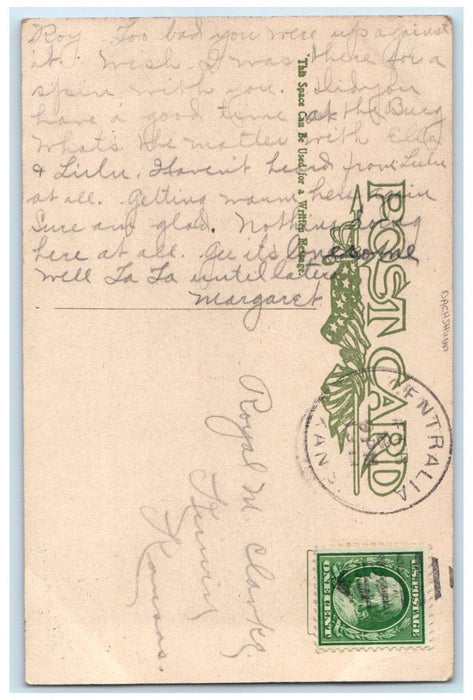 Roy. Too bad you were up against
it. Wish I was there for a
spin with you. Did you
have a good time at the Burg
Whats the matter with Ella
& Lulu. Havent heard from Lulu
at all. Getting warm here again
Sure am glad. Nothing doing
here at all. Gee its lonesome
well Ta Ta untill later
Margaret
This Space Can Be Used for a Written Message.
POST CARD
DACHSHUND
CENTRALIA
KANS.
Royal M. Clarke,
Kansas.
U.S. POSTAGE
ONE CENT